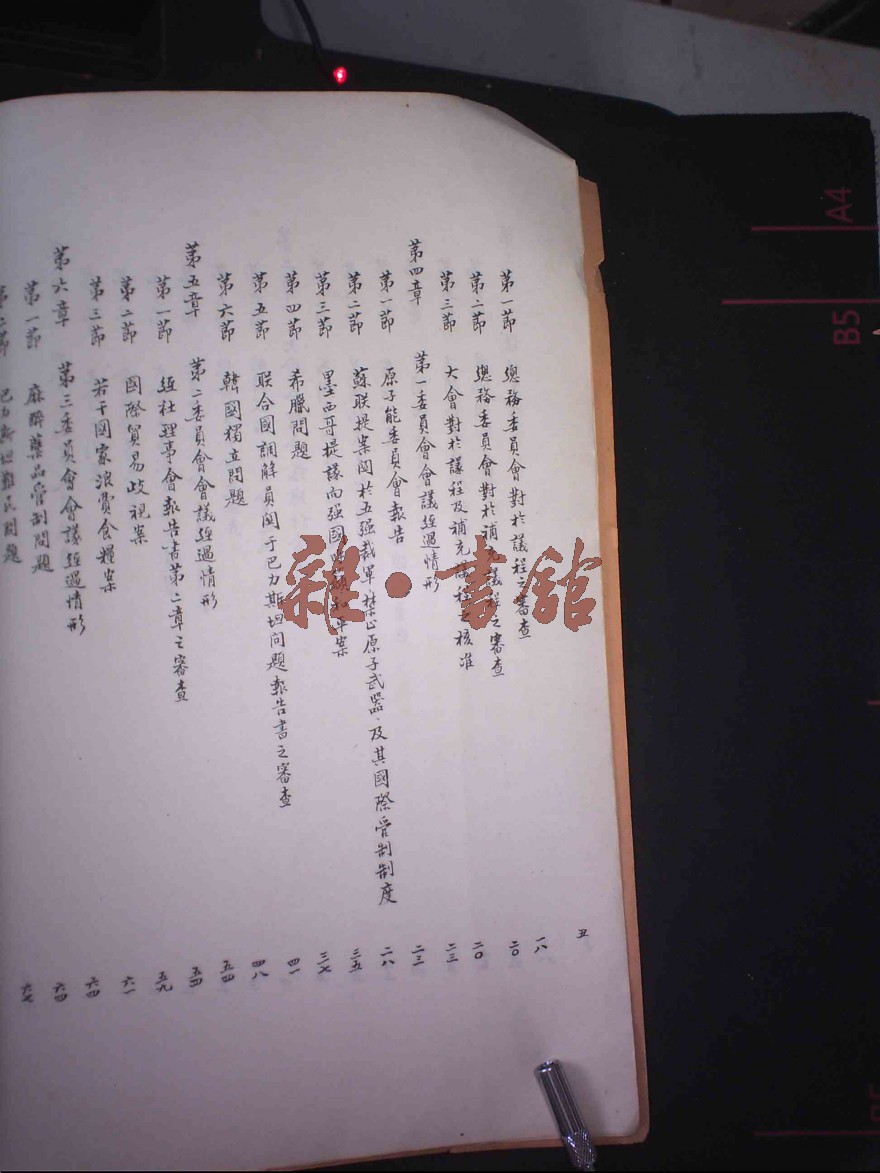 丑
第一節 總務委員會對於議程之審查 一八
第二節 總務委員會對於補充議程之審查 二〇
第三節 大會對於議程及補充議程之核准 二〇
第四章 第一委員會會議經過情形 二三
第一節 原子能委員會報告 二三
第二節 蘇联提案関於五强裁軍、禁止原子武器、及其國際管制制度 二八
第三節 墨西哥提議向强國呼籲和平案 三五
第四節 希臘問題 三七
第五節 联合國調解員関于巴力斯坦問題報告書之審查 四一
第六節 韓國獨立問題 四八
第五章 第二委員會會議經過情形 五四
第一節 經社理事會報告書第二章之審查 五四
第二節 國際貿易歧視案 五九
第三節 若干國家浪費食糧案 六一
第六章 第三委員會會議經過情形 六四
第一節 麻醉藥品管制問題 六四
第二節 巴力斯坦難民問題 六七
雜·書館
A4
B5